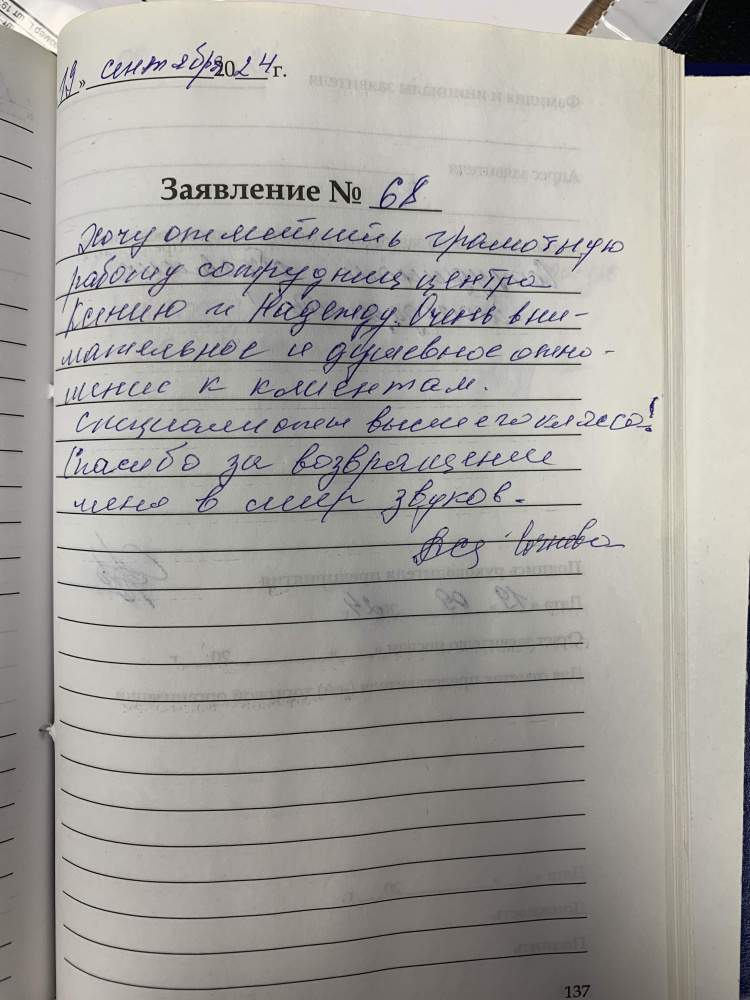 19 » сентября 2024 г.
Заявление № 68
Хочу отметить грамотную
работу сотрудниц центра
Ксению и Надежду. Очень вни-
мательное и душевное отно-
шение к клиентам.
Специалисты высшего класса!
Спасибо за возвращение
меня в мир звуков.
137